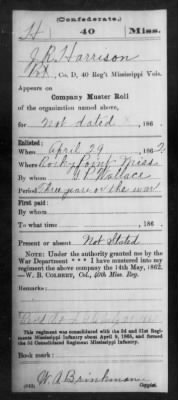 (Confederate.)
H 40 Miss.
J. R. Harrison
Pvt., Co. D, 40 Reg't Mississippi Vols.
Appears on
Company Muster Roll
of the organization named above,
for Not dated, 186 .
Enlisted:
When April 29, 1862.
Where Rocky Point Miss
By whom Wallace
Period Three years or the war
First paid:
By whom
To what time , 186 .
Present or absent Not Stated
NOTE: Under the authority granted me by the
War Department * * * I have mustered into my
regiment the above company the 14th May, 1862.
—W. B. COLBERT, Col., 40th Miss. Reg.
Remarks:
This regiment was consolidated with the 3d and 31st Regiments
Mississippi Infantry about April 9, 1865, and formed
the 3d Consolidated Regiment Mississippi Infantry.
Book mark:
W. A. Brinkman
Copyist.